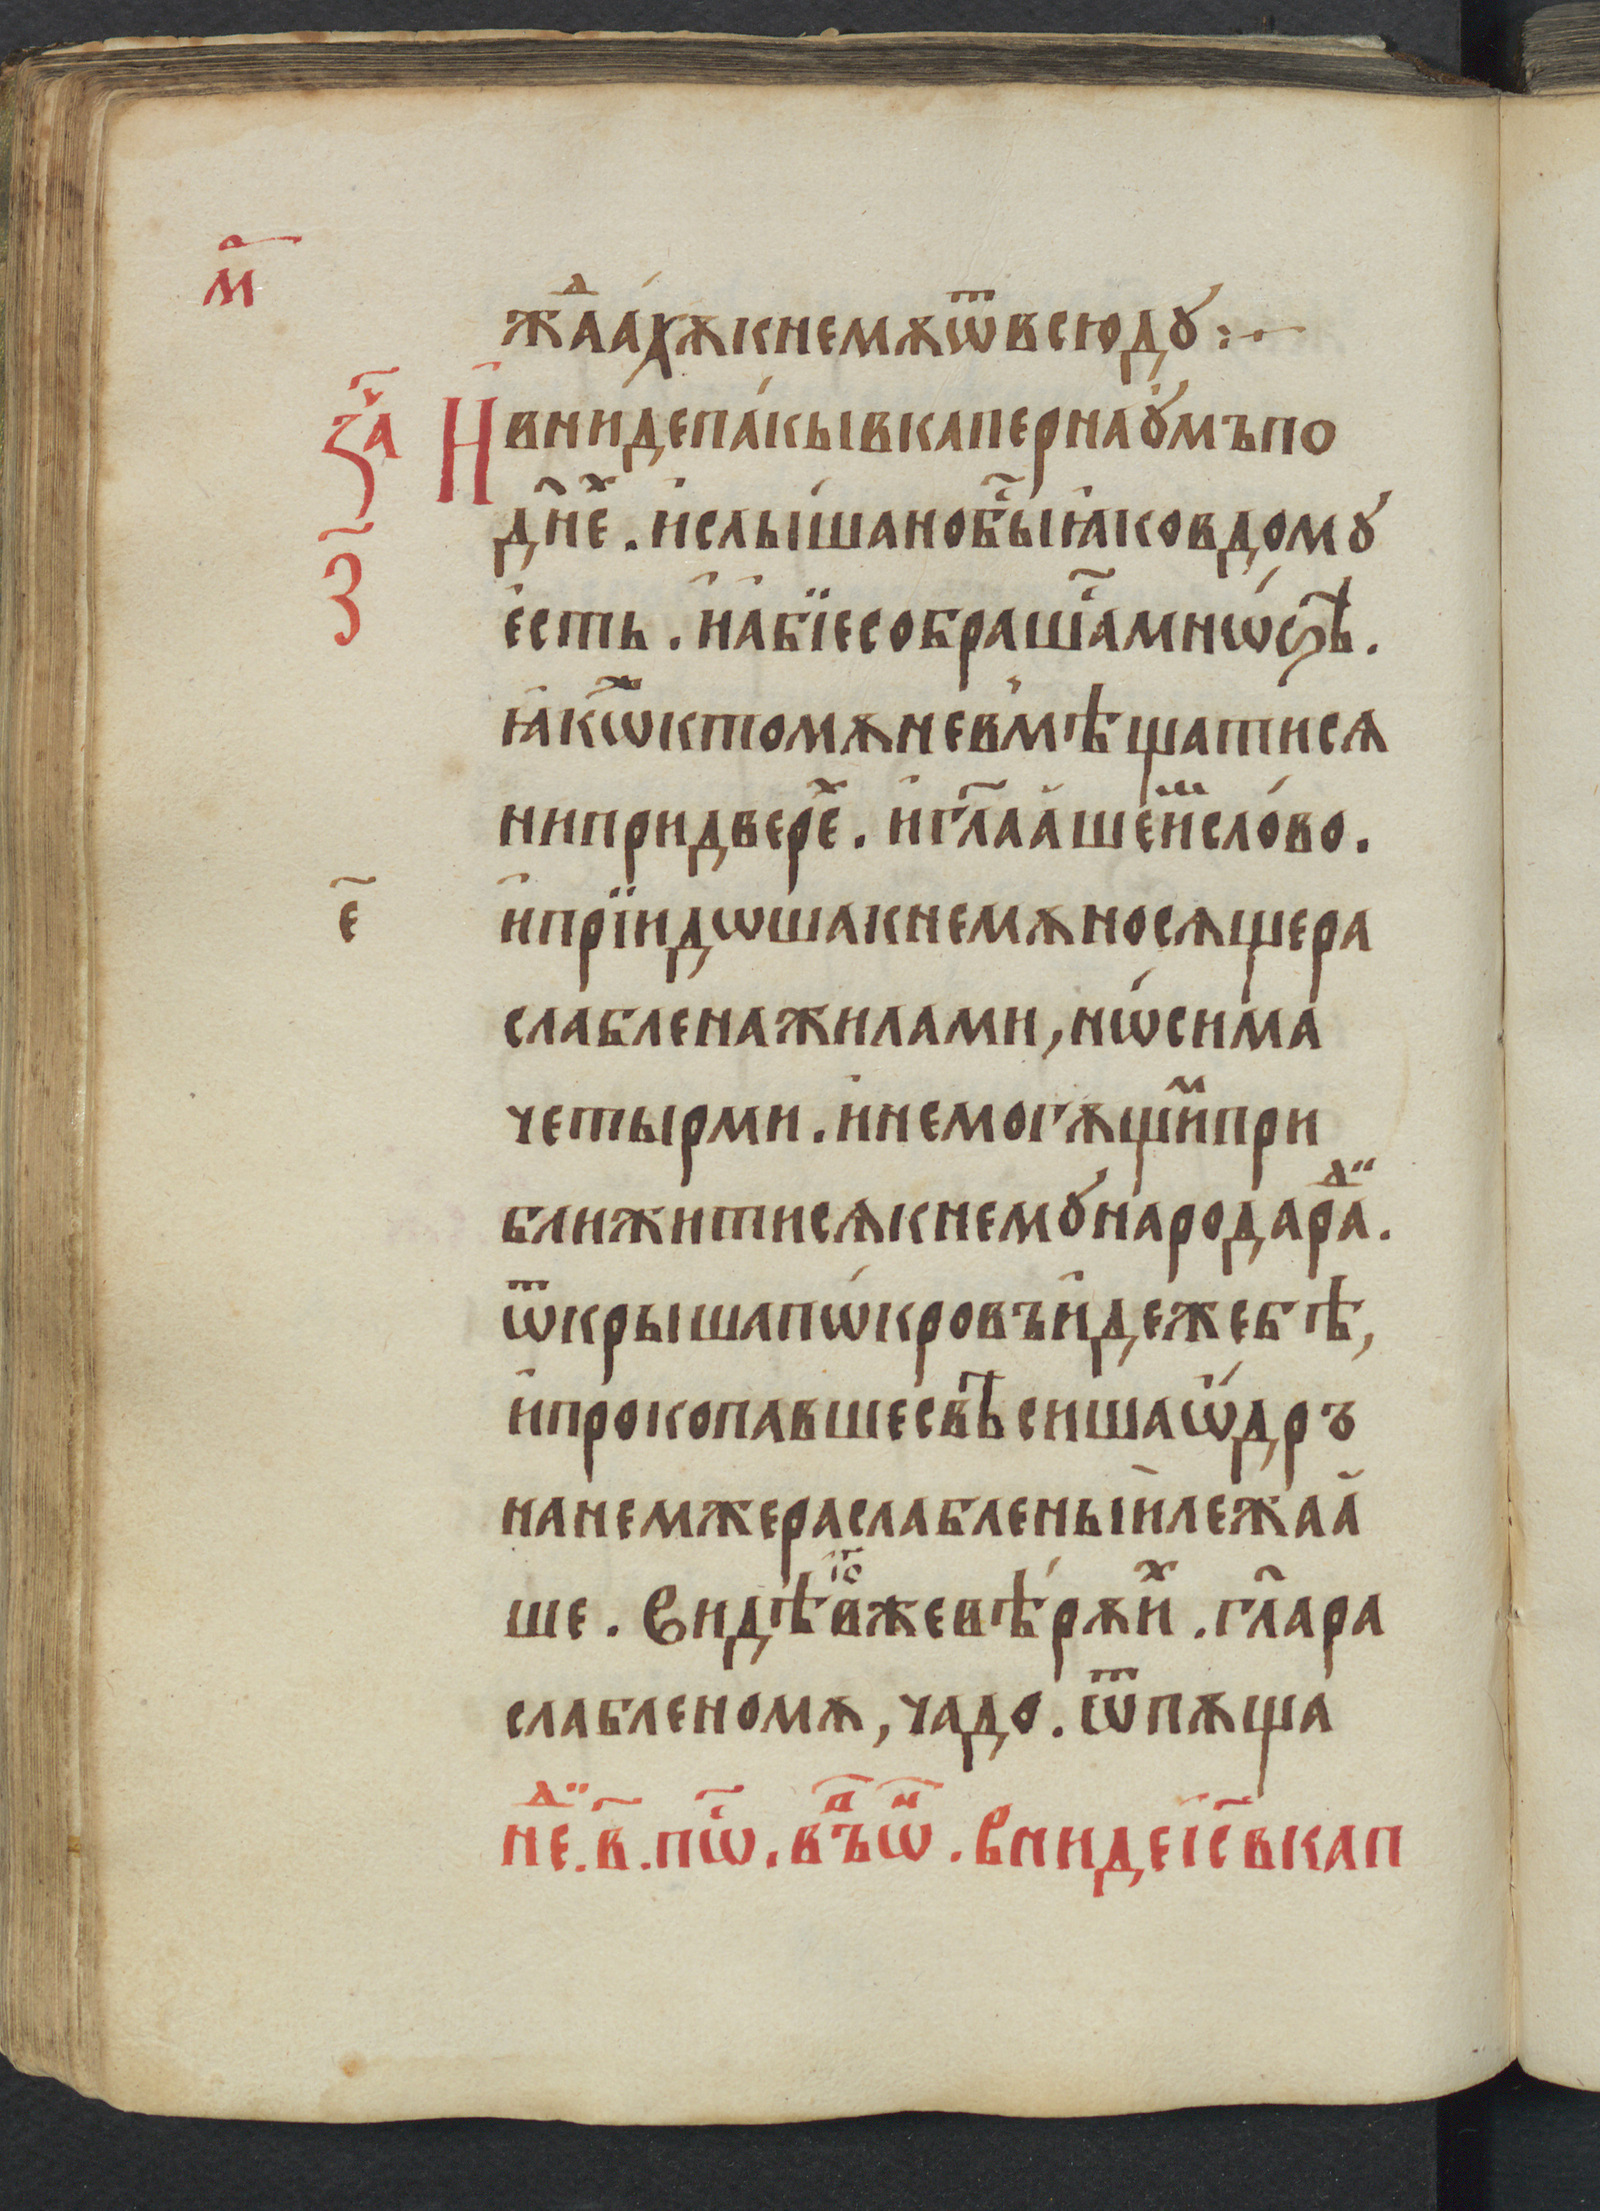 м҃а
жⷣаахѫ к немѫ ѿ всюдꙋ :·
за҃ч И вниде па́кы в капернаꙋ́мъ по
з҃
дн҃еⷯ . и҆ слы́шано бы҃сⷭ ꙗ҆ко в домꙋ
е҆сть . и҆ а҆бїе собрашаⷭ҇ мнѡ́ѕѣ .
ꙗ҆кѡⷤ ктомѫ не вмѣщатися
ни при двереⷯ . и҆ гл҃аа̑ше иⷨ сло́во .
є҃ и҆ прїидѡша к немѫ носяще ра
слаблена жилами , нѡ́сима
четырми . и҆ не могѫщиⷨ при
ближитися к немꙋ́ народа раⷣи .
ѿкрыша пѡ́кровъ и҆деже бѣ ,
и҆ прокопавше свѣсиша ѡ҆́дръ
на немже раслабленый лежаа̑
ше . Видѣв же і҃с вѣ́рѫ иⷯ . гл҃а ра
слабленомѫ , чадо . ѿпѫща
неⷣⷧ . в҃ . пѡⷭ҇ . въⷫ ѡⷩ҇ . Вниде і҃с в кап